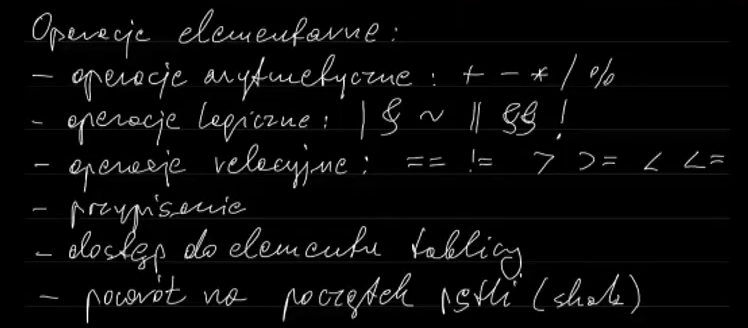 Operacje elementarne:
- operacje arytmetyczne: + - * / %
- operacje logiczne: | & ~ || && !
- operacje relacyjne: == != > >= < <=
- przypisanie
- dostęp do elementu tablicy
- powrót na początek pętli (skok)